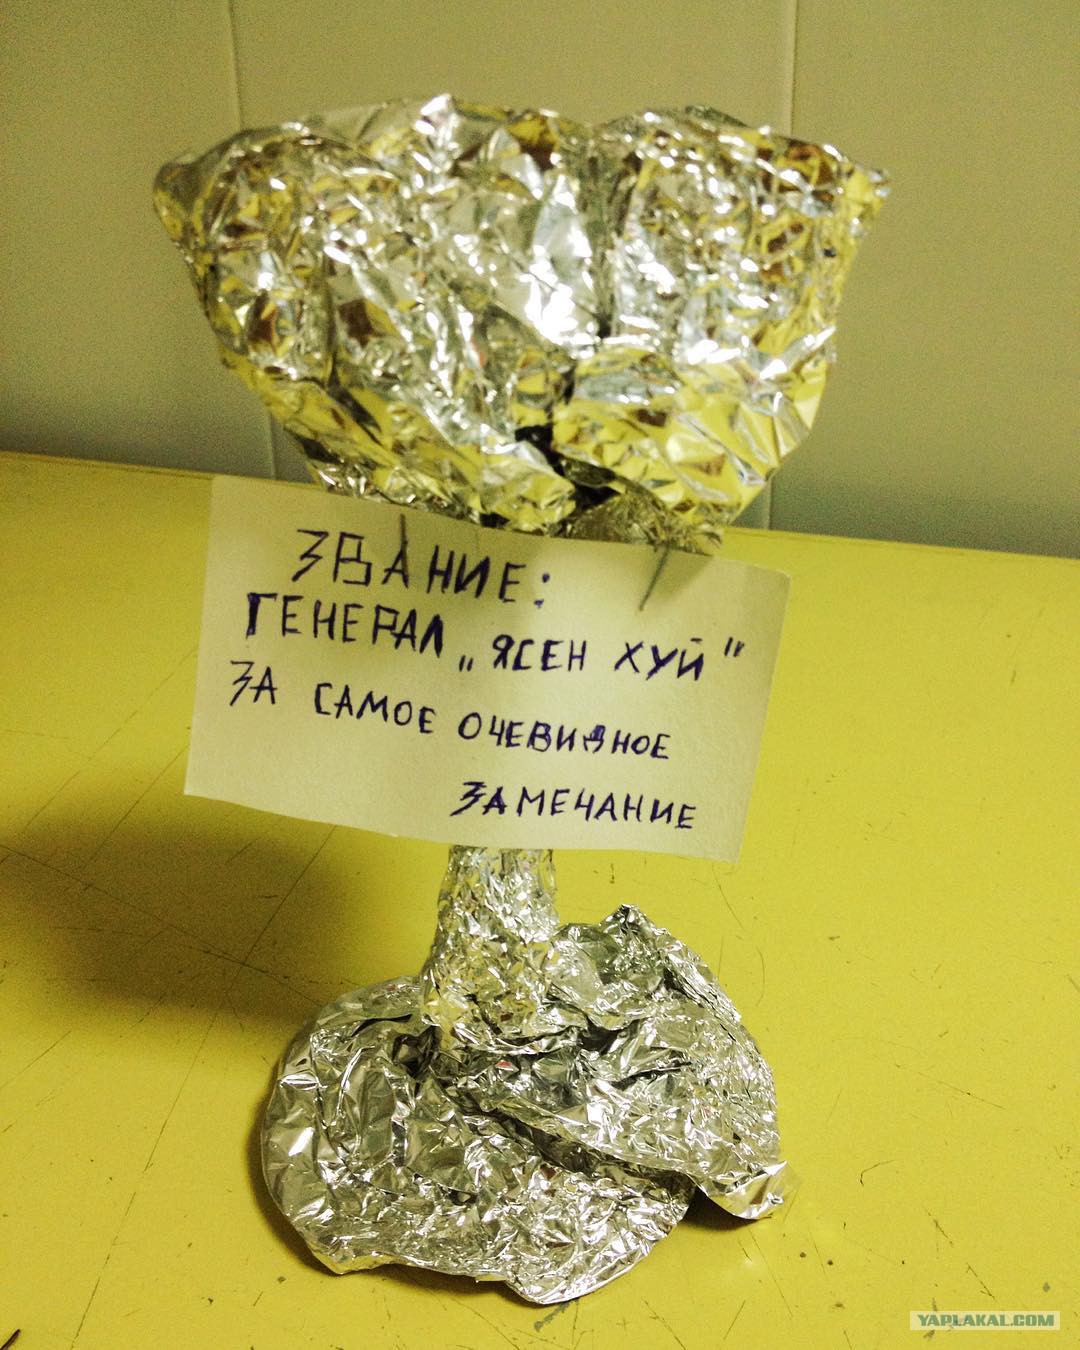 ЗВАНИЕ:
ГЕНЕРАЛ „ЯСЕН ХУЙ"
ЗА САМОЕ ОЧЕВИДНОЕ
ЗАМЕЧАНИЕ
YAPLAKAL.COM